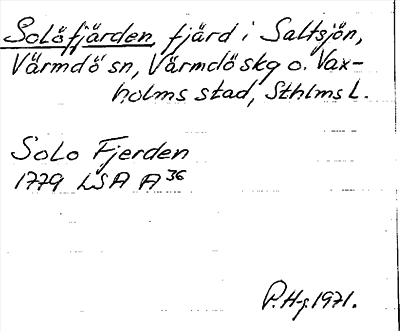 Solöfjärden, fjärd i Saltsjön,
Värmdö sn, Värmdö skg o. Vax-
holms stad, Sthlms L.
Solo Fjerden
1779 LSA A 36
P. H-g. 1971.